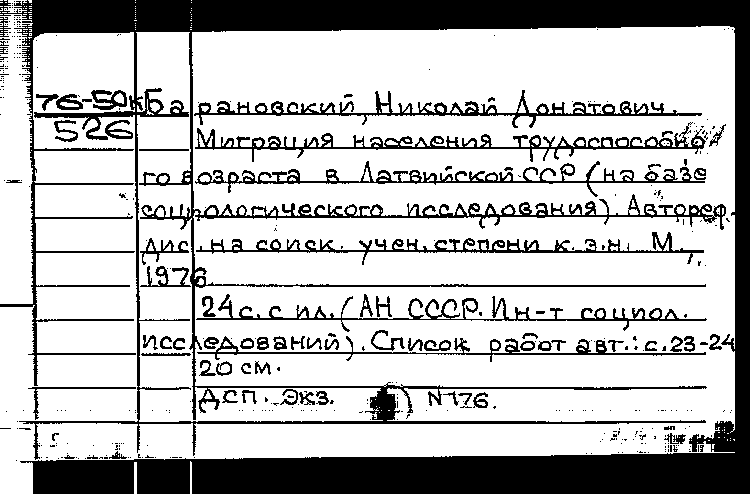 76-50к Барановский, Николай Донатович.
526
Миграция населения трудоспособно
го возраста в Латвийской ССР (на базе
социологического исследования). Автореф.
дис. на соиск. учен. степени к.э.н. М.,
1976.
24 с. с ил. (АН СССР. Ин-т социол.
исследований). Список работ авт.: с.23-24
20 см.
ДСП. Экз. ) N 176.